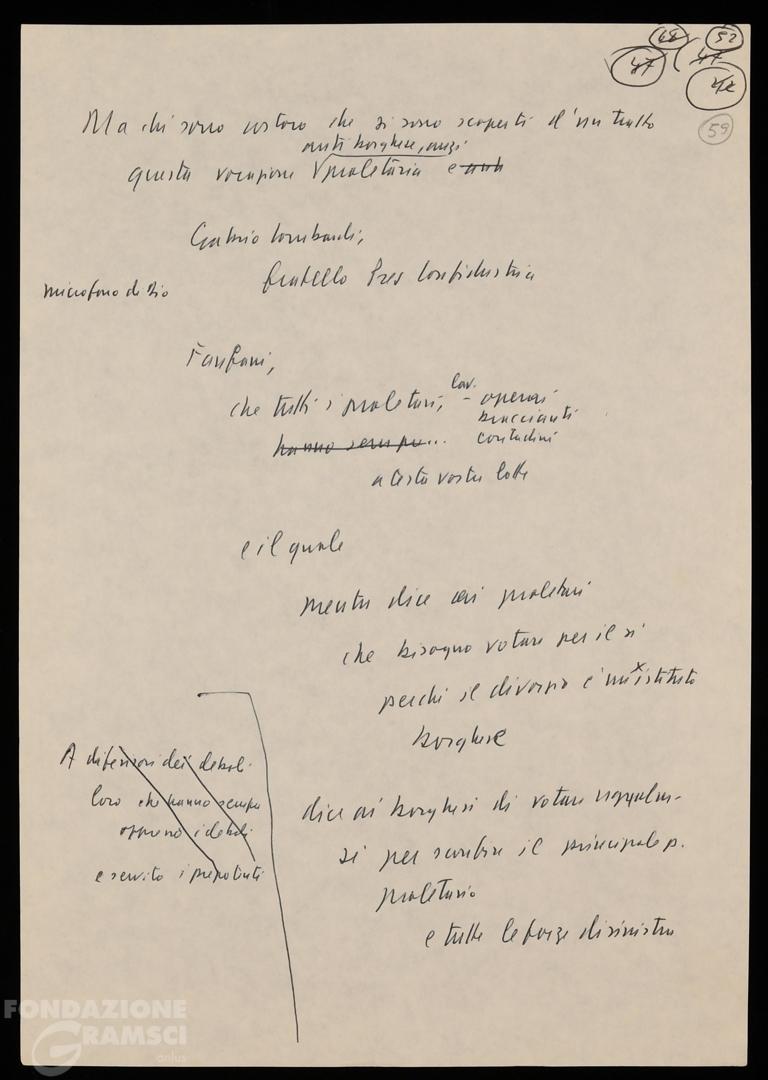 68 52
47 47
42
59
Ma chi sono costoro che si sono scoperti d'un tratto
anti borghese, anzi
questa vocazione proletaria e anti
Gabrio Lombardi,
fratello Pres Confidustria
microfono di Dio
Fanfani,
che tutti i proletari, lav. - operai
braccianti
hanno sempre... contadini
a testa vostre lotte
e il quale
mentre dice ai proletari
che bisogna votare per il si
perché il divorzio è un istituto
borghese
A difensori dei deboli
loro che hanno sempre
oppresso i deboli
e servito i prepotenti
dice ai borghesi di votare ugualmen-
si per sconfiggere il principale p.
proletario
e tutte le forze di sinistra
FONDAZIONE
GRAMSCI
onlus